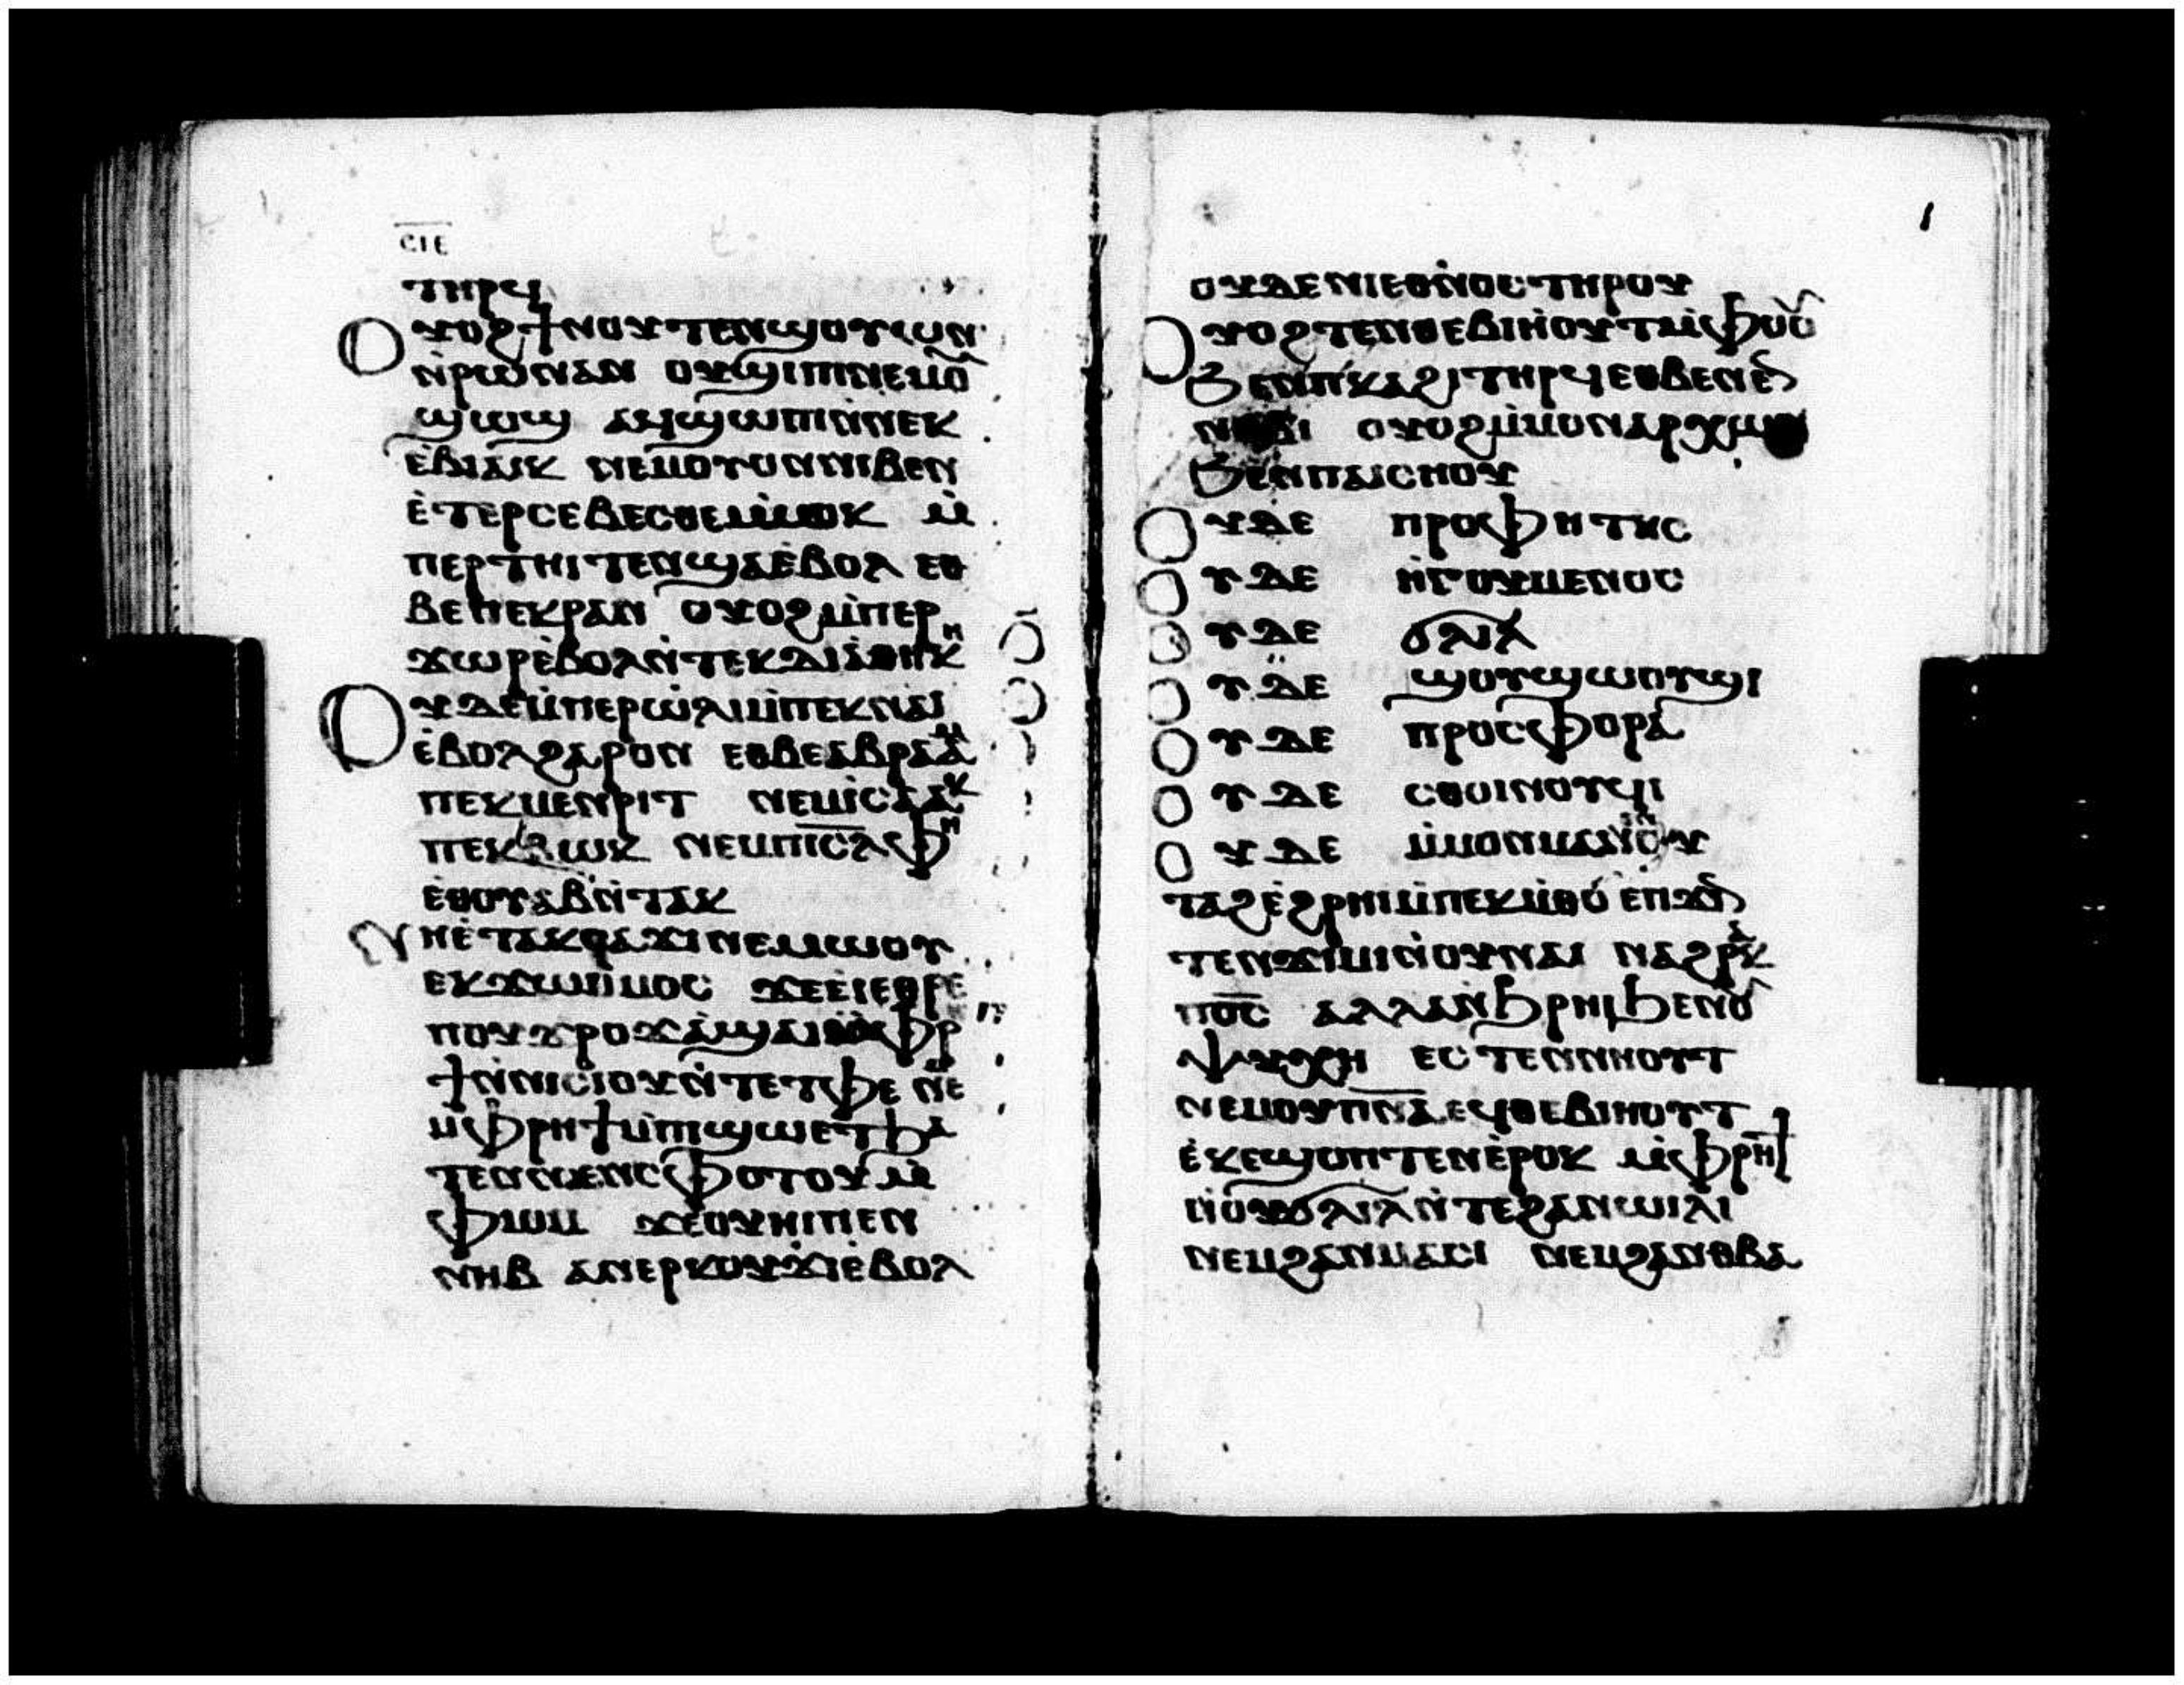 ⲤⲒⲈ
ⲧⲏⲣϥ
Ⲟⲩⲟϩ ϯⲛⲟⲩ ⲧⲉⲛϣⲟⲩⲱⲛ
ⲛ̀ⲣⲱⲛ ⲁⲛ ⲟⲩϣⲓⲡⲓ ⲛⲉⲙⲟ̅
ϣⲱϣ ⲁⲩϣⲱⲡⲓ ⲛ̀ⲛⲉⲕ
ⲉ̀ⲃⲓⲁⲓⲕ ⲛⲉⲙ ⲟⲩⲟⲛ ⲛⲓⲃⲉⲛ
ⲉ̀ⲧⲉⲣⲥⲉⲃⲉⲥⲑⲉ ⲙ̀ⲙⲟⲕ ⲙ̀
ⲡⲉⲣⲧⲏⲓⲧⲉⲛ ϣⲁ ⲉ̀ⲃⲟⲗ ⲉⲑ
ⲃⲉ ⲡⲉⲕⲣⲁⲛ ⲟⲩⲟϩ ⲙ̀ⲡⲉⲣ
ϫⲱⲣ ⲉ̀ⲃⲟⲗ ⲛ̀ⲧⲉⲕⲇⲓⲁⲑⲏⲕⲏ
Ⲟⲩⲇⲉ ⲙ̀ⲡⲉⲣⲱ̀ⲗⲓ ⲙ̀ⲡⲉⲕⲛⲁⲓ
ⲉ̀ⲃⲟⲗ ϩⲁⲣⲟⲛ ⲉⲑⲃⲉ ⲁⲃⲣⲁⲁⲙ
ⲡⲉⲕⲙⲉⲛⲣⲓⲧ ⲛⲉⲙ ⲓⲥⲁⲁⲕ
ⲡⲉⲕⲃⲱⲕ ⲛⲉⲙ ⲡⲓⲥ̅ⲗ̅ ⲫⲏ
ⲉⲑⲟⲩⲁⲃ ⲛ̀ⲧⲁⲕ
Ⲛⲏ ⲉ̀ⲧⲁⲕⲥⲁϫⲓ ⲛⲉⲙⲱⲟⲩ
ⲉⲕϫⲱ ⲙ̀ⲙⲟⲥ ϫⲉ ⲉⲓⲉⲑⲣⲉ
ⲡⲟⲩϫⲣⲟϫ ⲁ̀ϣⲁⲓ ⲙ̀ⲫⲣⲏ
ϯ ⲛ̀ⲛⲓⲥⲓⲟⲩ ⲛ̀ⲧⲉ ⲧⲫⲉ ⲛⲉ
ⲙ ⲙ̀ⲫⲣⲏϯ ⲙ̀ⲡⲓϣⲱ ⲉⲧϧⲁ
ⲧⲉⲛ ⲛⲉⲛⲥⲫⲟⲧⲟⲩ ⲙ̀
ⲫⲓⲟⲙ ϫⲉ ⲟⲩⲏⲓ ⲡⲉⲛ
ⲛⲏⲃ ⲁⲛⲉⲣⲕⲟⲩϫⲓ ⲉ̀ⲃⲟⲗ
ⲟⲩⲇⲉ ⲛⲓⲉⲑⲛⲟⲥ ⲧⲏⲣⲟⲩ
Ⲟⲩⲟϩ ⲧⲉⲛⲑⲉⲃⲓⲏⲟⲩⲧ ⲙ̀ⲫⲟⲟⲩ
ϧⲉⲛ ⲡ̀ⲕⲁϩⲓ ⲧⲏⲣϥ ⲉⲑⲃⲉ ⲛⲉⲛ
ⲛⲟⲃⲓ ⲟⲩⲟϩ ⲙ̀ⲙⲟⲛ ⲁⲣⲭⲱⲛ
ϧⲉⲛ ⲡⲁⲓⲥⲏⲟⲩ
Ⲟⲩⲇⲉ ⲡⲣⲟⲫⲏⲧⲏⲥ
Ⲟⲩⲇⲉ ⲏ̀ⲅⲟⲩⲙⲉⲛⲟⲥ
Ⲟⲩⲇⲉ ϭⲗⲓⲗ
Ⲟⲩⲇⲉ ϣⲟⲩϣⲱⲟⲩϣⲓ
Ⲟⲩⲇⲉ ⲡⲣⲟⲥⲫⲟⲣⲁ
Ⲟⲩⲇⲉ ⲥⲑⲟⲓⲛⲟⲩϥⲓ
Ⲟⲩⲇⲉ ⲙ̀ⲙⲟⲛ ⲙⲁ ⲛ̀ⲟⲩ
ⲧⲁϩ ⲉ̀ϩⲣⲏⲓ ⲙ̀ⲡⲉⲕⲙ̀ⲑⲟ ⲉⲡϫⲓⲛ
ⲧⲉⲛϫⲓⲙⲓ ⲛ̀ⲟⲩⲛⲁⲓ ⲛⲁϩⲣⲁⲕ
ⲡⲟ̅ⲥ̅ ⲁⲗⲗⲁ ⲛ̀ϧⲣⲏⲓ ϧⲉⲛ ⲟⲩ
ⲯⲩⲭⲏ ⲉⲥⲧⲉⲛⲛⲏⲟⲩⲧ
ⲛⲉⲙ ⲟⲩⲡ̅ⲛ̅ⲁ̅ ⲉϥⲑⲉⲃⲓⲏⲟⲩⲧ
ⲉ̀ⲕⲉϣⲟⲡⲧⲉⲛ ⲉ̀ⲣⲟⲕ ⲙ̀ⲫⲣⲏϯ
ⲛ̀ⲟⲩϭⲗⲓⲗ ⲛ̀ⲧⲉ ϩⲁⲛⲱⲓⲗⲓ
ⲛⲉⲙ ϩⲁⲛⲙⲁⲥⲓ ⲛⲉⲙ ϩⲁⲛⲑⲃⲁ